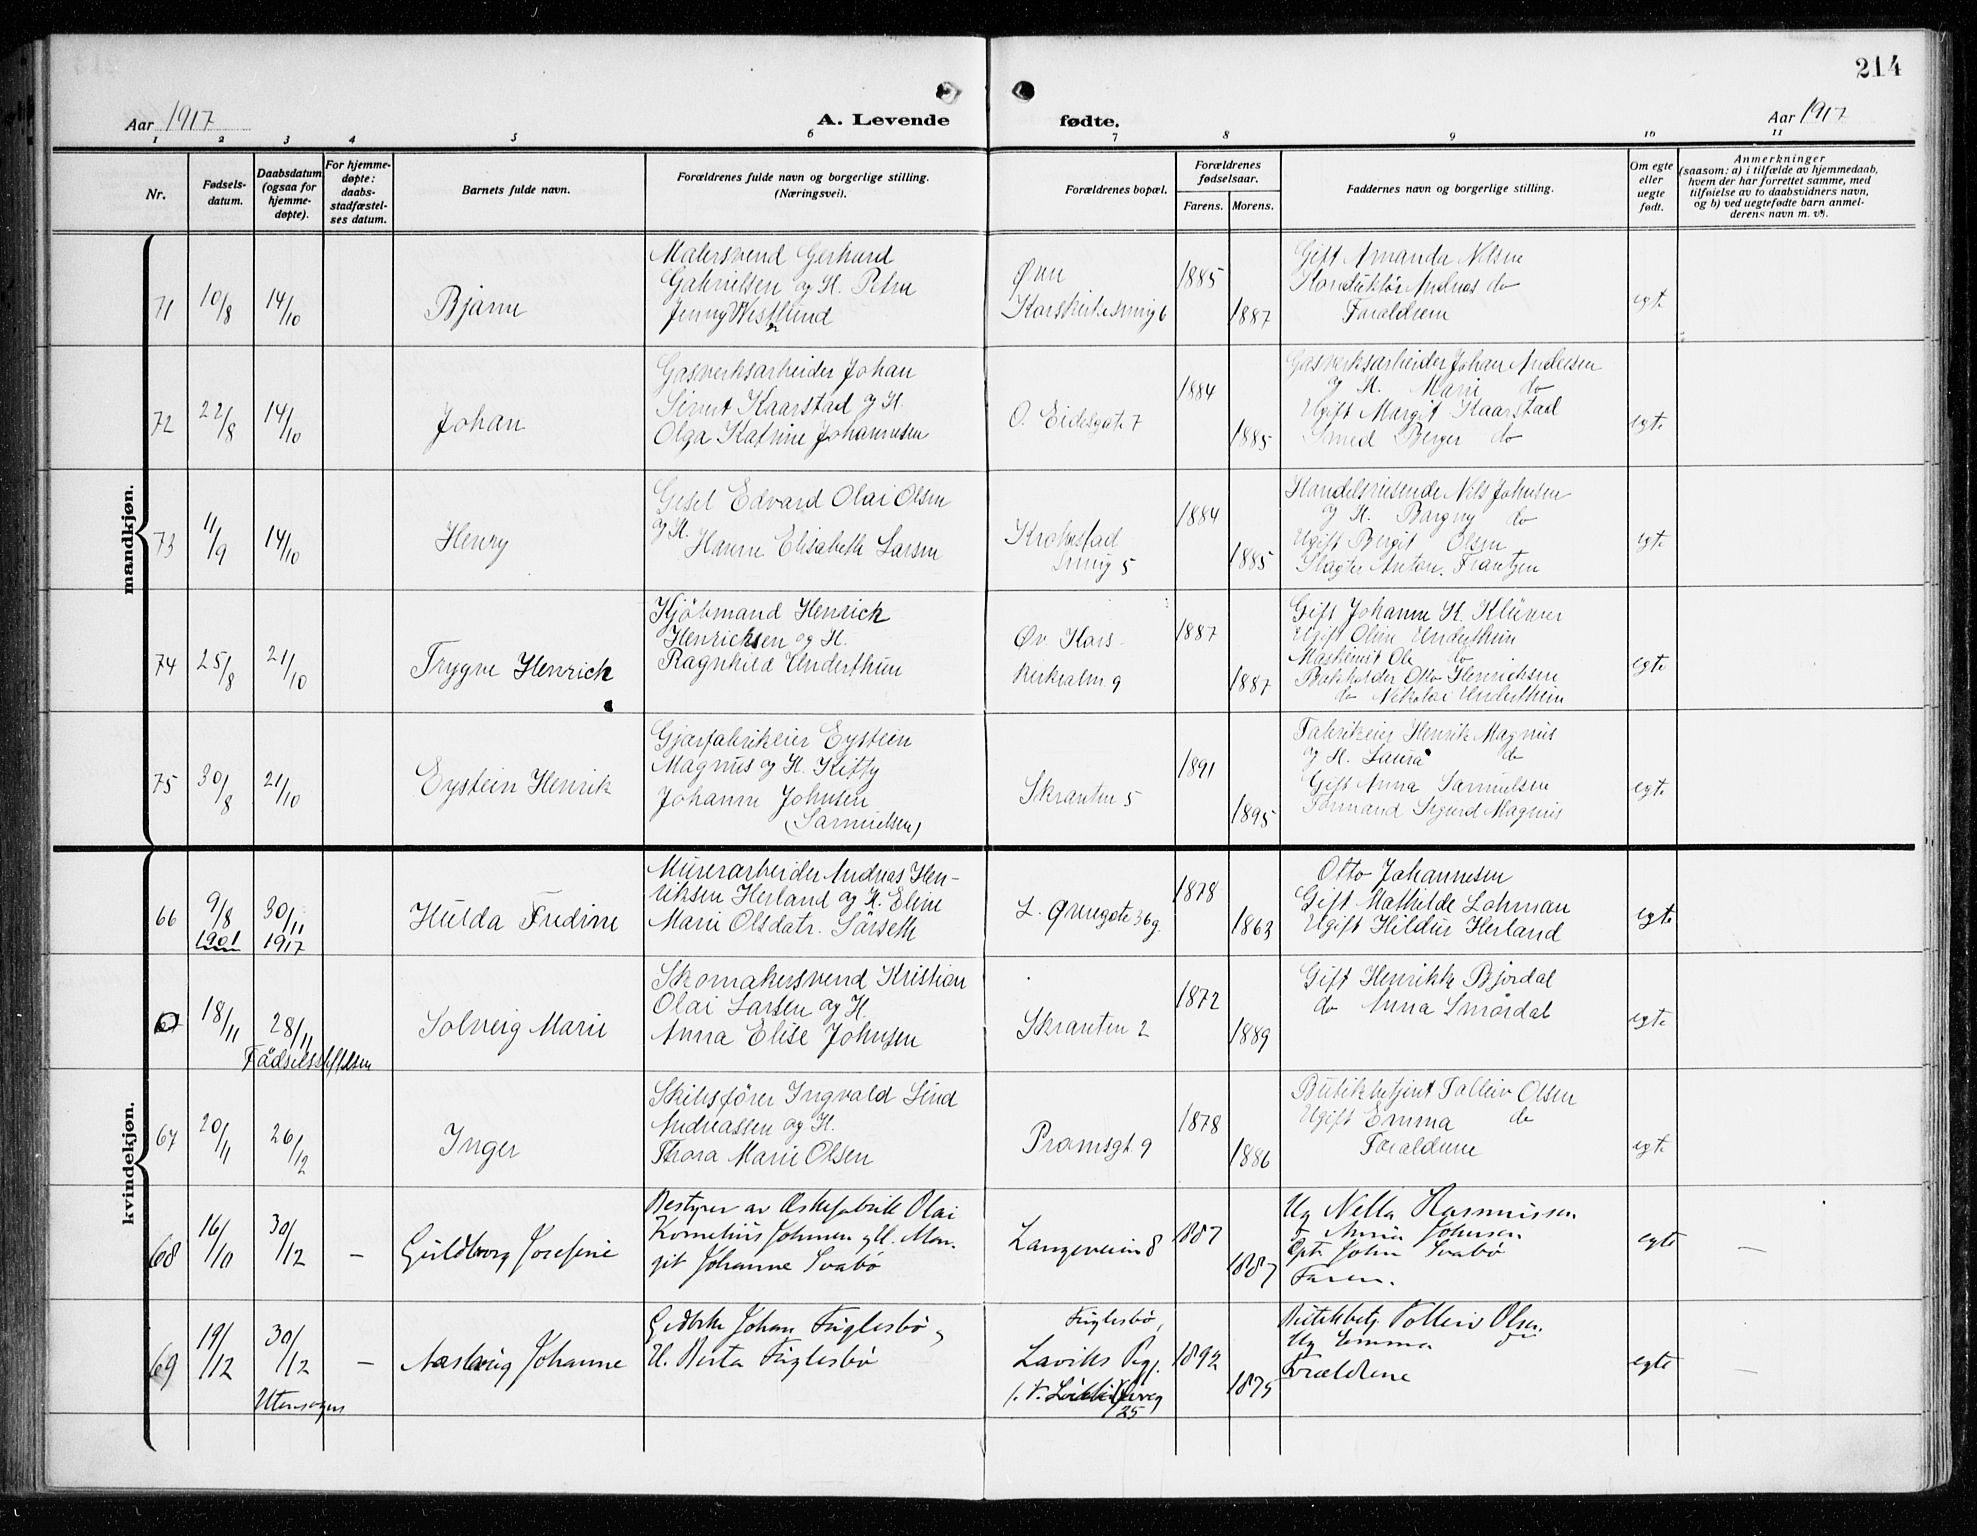 214
Aar 1917
A. Levende fødte.
Aar 1917
1 2 3 4 5 6 7 8 9 10 11
Nr.
Fødsels-
datum.
Daabsdatum
(ogsaa for
hjemme-
døpte).
For hjemme-
døpte:
daabs-
stadfæstel-
ses datum.
Barnets fulde navn.
Forældrenes fulde navn og borgerlige stilling.
(Næringsvei).
Forældrenes bopæl.
Forældrenes
fødselsaar.
Farens. Morens.
Faddernes navn og borgerlige stilling.
Om egte
eller
uegte
født.
Anmerkninger
(saasom: a) i tilfælde av hjemmedaab,
hvem der har forrettet samme, med
tilføielse av to daabsvidners navn,
og b) ved uegtefødte barn anmel-
derens navn m. v.).
mandkjøn.
71
10/8
14/10
Bjarne
Malersvend Gerhard
Gabrielsen og H. Petra
Jenny Westlund
Øvre
Korskirkesmug 6
1885
1887
Gift Amanda Nilsen
Konduktør Andreas do
Forældrene
egte
72
22/8
14/10
Johan
Gasverksarbeider Johan
Sivert Kaarstad og H.
Olga Katrine Johannesen
O. Eidesgate 7
1884
1885
Gasverksarbeider Johan Andersen
og H. Marie do
Ugift Margit Kaarstad
Smed Berger do
egte
73
11/9
14/10
Henry
Gesel Edvard Olai Olsen
og H.
Hanne Elisabeth Larsen
Krohnstad
smug 5
1884
1885
Handelsreisende Nils Johnsen
og H. Borgny do
Ugift Bergit Olsen
Slagter Anton Frantzen
egte
74
25/8
21/10
Trygve Henrick
Kjöbmand Henrick
Henricksen og H.
Ragnhild Underthun
Øv. Kors-
kirkealm 9
1887
1887
Gift Johanne H. Klüver
Ugift Oline Underthun
Maskinist Ole do
Bokholder Otto Henricksen
do Nikolai Underthun
egte
75
30/8
21/10
Eystein Henrik
Gjærfabrikeier Eystein
Magnus og H. Kitty
Johanne Johnsen
(Samuelsen)
Skranten 5
1891
1895
Fabrikeier Henrik Magnus
og H. Laura do
Gift Anna Samuelsen
Formand Sigurd Magnus
egte
kvindekjøn.
66
9/8
1901
30/11
1917
Hulda Fredine
Murerarbeider Andreas Hen-
riksen Herland og H. Eline
Marie Olsdatr. Sörseth
L. Øvregate 36 g.
1878
1863
Otto Johannesen
Gift Mathilde Lohman
Ugift Hildur Herland
egte
67
18/11
28/11
Fødselsstiftelsen
Solveig Marie
Skomakersvend Kristian
Olai Larsen og H.
Anna Elise Johnsen
Skranten 2
1872
1889
Gift Henrikke Bjordal
do Anna Smördal
egte
67
20/11
26/12
Inger
Skibsfører Ingvald Lind
Andreassen og H.
Thora Marie Olsen
Pramsgt 9
1878
1886
Butikbetjent Tolleiv Olsen
Ugift Emma do
Forældrene
egte
68
16/10
30/12
–
Guldborg Josefine
Bestyrer av Æskefabrik Olai
Kornelius Johnsen og H. Mar-
git Johanne Svabø
Langeveien 8
1887
1887
Ug Nella Rasmussen
Anna Johnsen
John Svabø
Faren.
egte
–
69
19/12
30/12
Utensogns
–
Aaslaug Johanne
Gidbrker Johan Fuglesbø,
H. Berta Fuglesbø
Fuglesbø,
Laviks Pgj.
25
1892
1875
Butikbetj. Tolleiv Olsen
Ug Emma do
Forældrene
egte
–